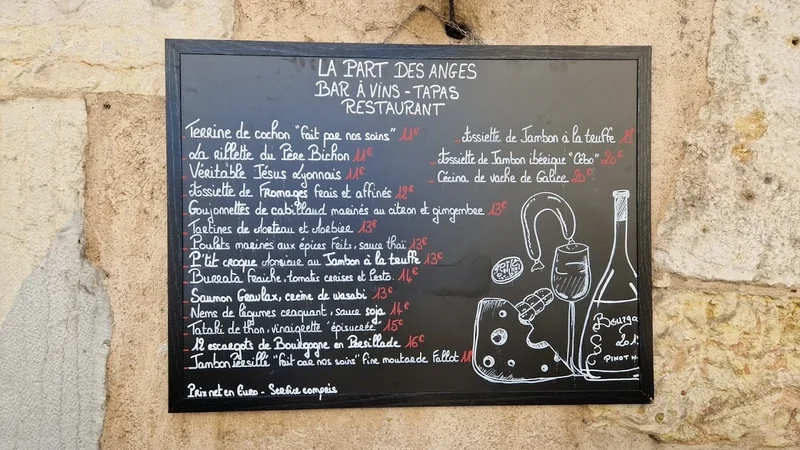 LA PART DES ANGES
BAR À VINS - TAPAS
RESTAURANT
Terrine de cochon "fait par nos soins" 11€
La rillette du Père Bichon 11€
Véritable Jésus Lyonnais 11€
Assiette de Fromages frais et affinés 12€
Goujonnettes de cabillaud marinés au citron et gingembre 13€
Tartines de Morteau et Morbier 13€
Poulets marinés aux épices Frits, sauce thaï 13€
P'tit croque Monsieur au Jambon à la truffe 13€
Burrata Fraiche, tomates cerises et Pesto 14€
Saumon Gravlax, crème de wasabi 13€
Nems de légumes craquant, sauce soja 14€
Tataki de thon, vinaigrette "épisucrée" 15€
12 escargots de Bourgogne en Persillade 16€
Jambon Persillé "fait par nos soins" Fine moutarde Fallot
Prix net en Euro - Service compris
Assiette de Jambon à la truffe
Assiette de Jambon ibérique "Cebo" 20€
Cécina de vache de Galice 20€
Bourgo
PINOT N